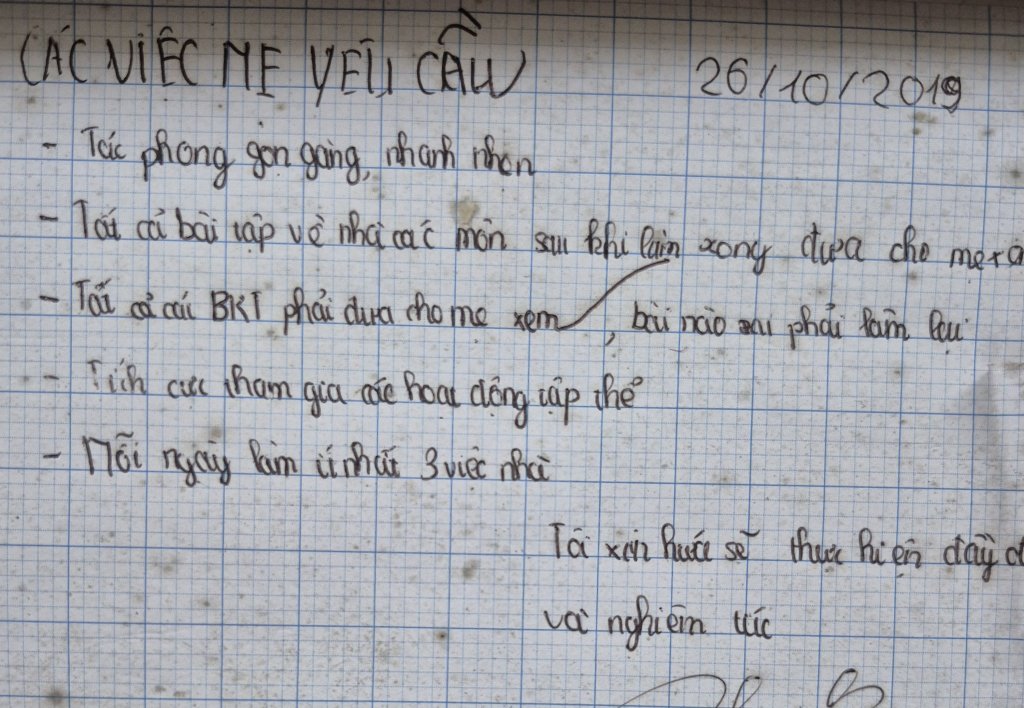 CÁC VIỆC MẸ YÊU CẦU 26/10/2019
- Tác phong gọn gàng, nhanh nhẹn
- Tất cả bài tập về nhà các môn sau khi làm xong đưa cho mẹ
- Tất cả các BKT phải đưa cho mẹ xem, bài nào sai phải làm lại
- Tích cực tham gia các hoạt động tập thể
- Mỗi ngày làm ít nhất 3 việc nhà
Tôi xin hứa sẽ thực hiện đầy
và nghiêm túc